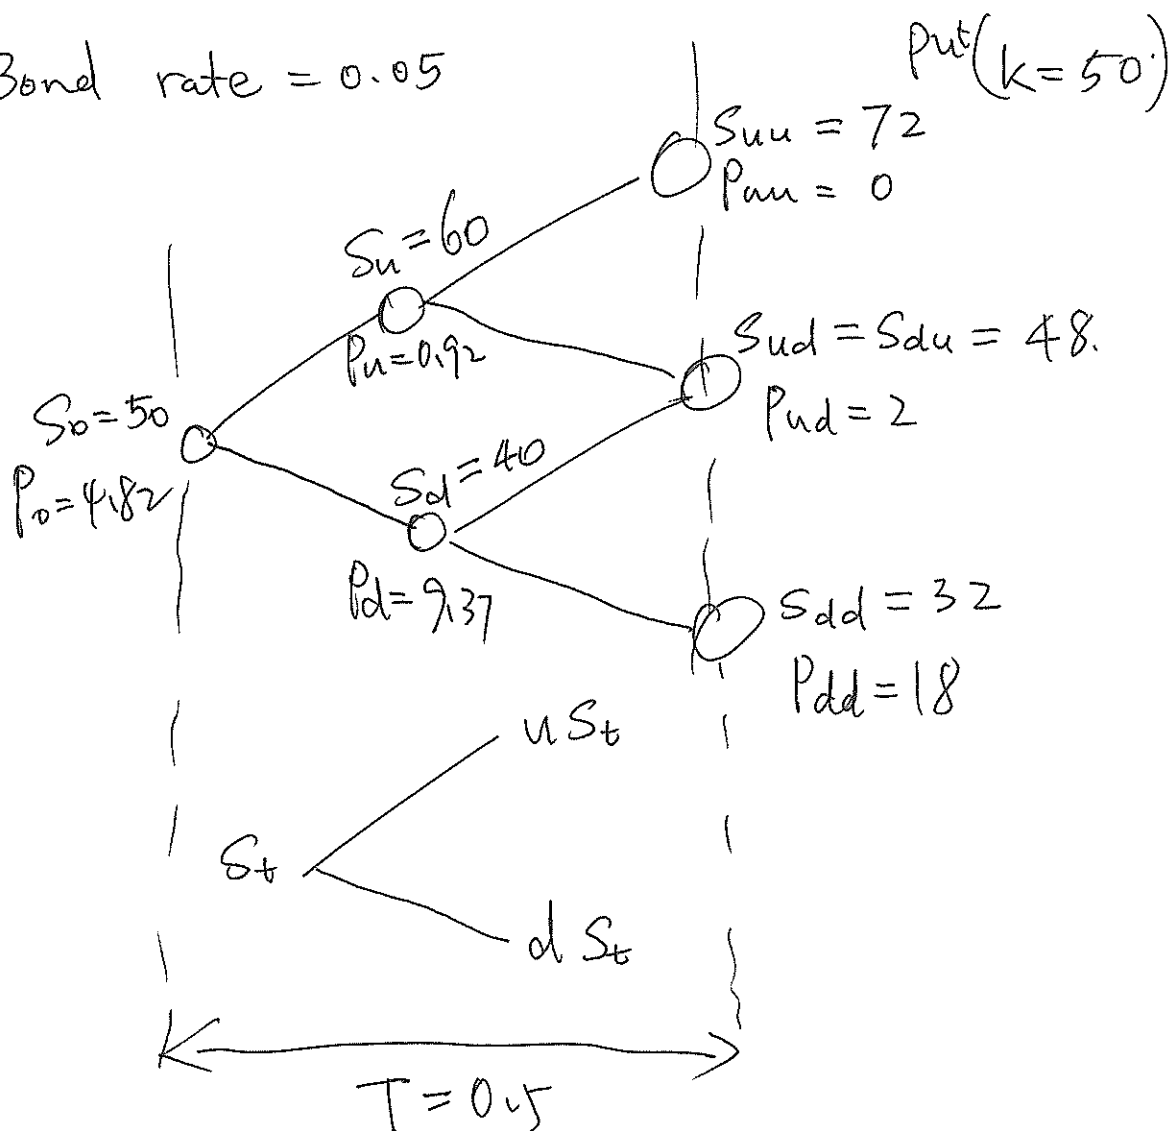 Bond rate = 0.05
Put(K=50)
Suu = 72
Puu = 0
Su=60
Pu=0.92
Sud = Sdu = 48.
Pud = 2
S0=50
P0=4.82
Sd=40
Pd=9.37
Sdd = 32
Pdd = 18
u St
St
d St
T = 0.5